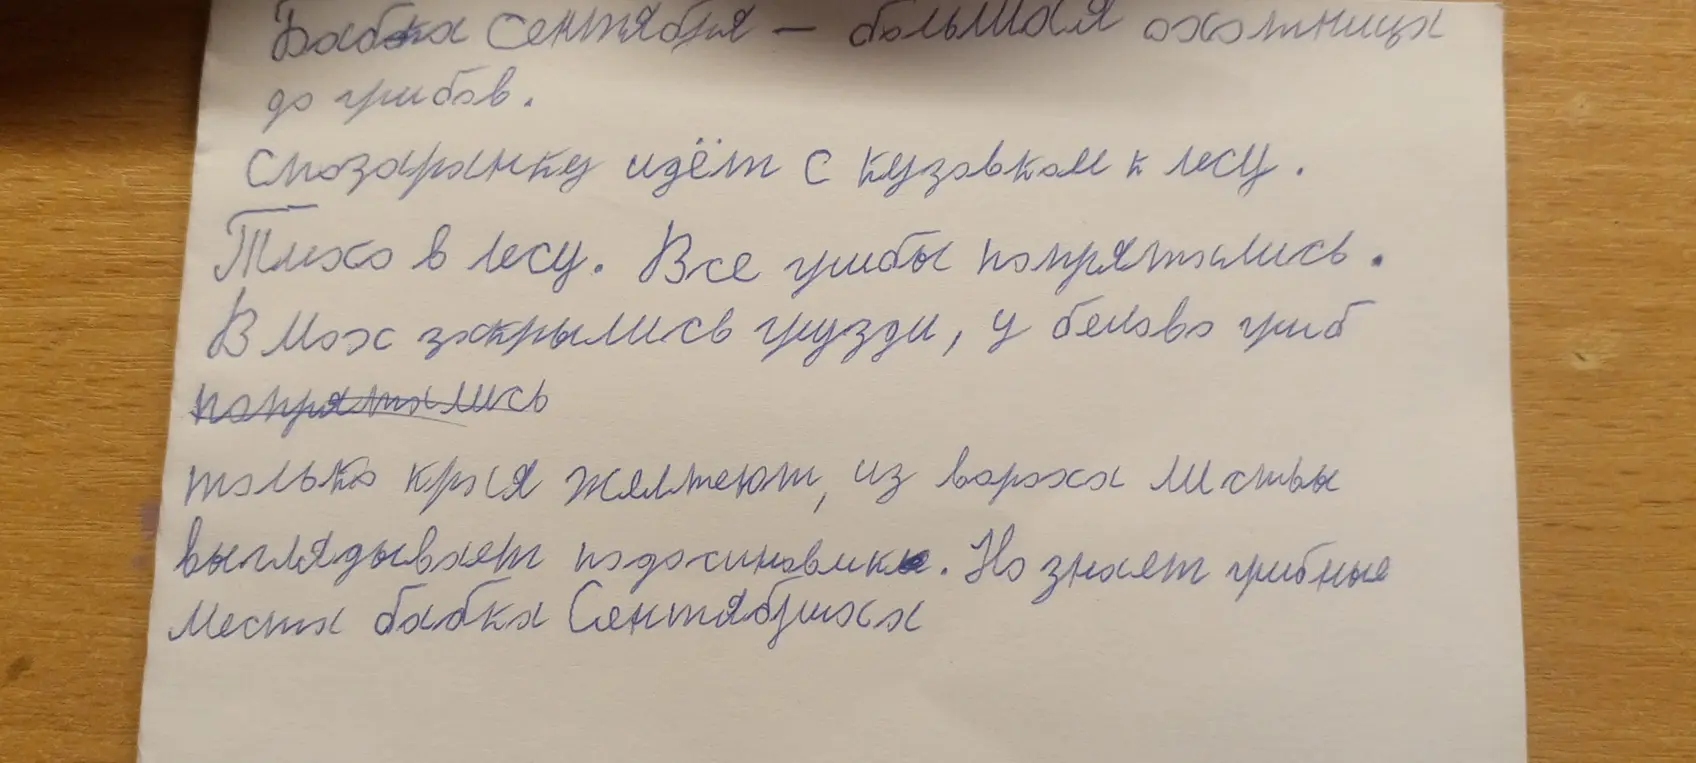 Бабка Сентября – большая охотница
до грибов.
Спозаранку идёт с кузовком к лесу.
Тихо в лесу. Все грибы попрятались.
В мох закрылись грузди, у белово гриб
попрятались
только края желтеют, из вороха листвы
выглядывает подосиновик. Но знает грибные
места бабка Сентябриха